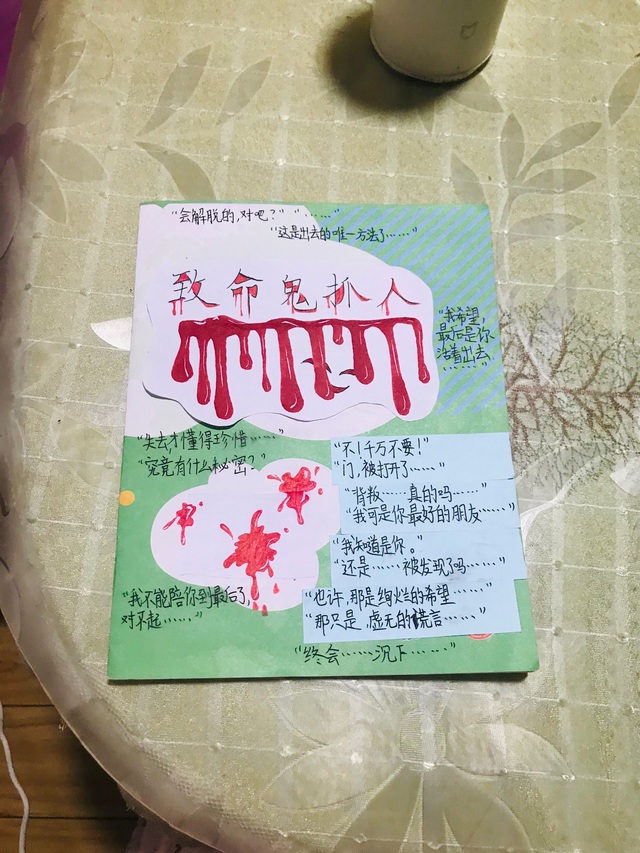 “会解脱的,对吧?”“……”
“这是出去的唯一方法了……”
致命鬼抓人
“我希望,
最后是你
活着出去
……”
“失去才懂得珍惜……”
“究竟有什么秘密?”
“不!千万不要!”
“门,被打开了……”
“背叛……真的吗……”
“我可是你最好的朋友……”
“我知道是你。”
“还是……被发现了吗……”
“我不能陪你到最后了,
对不起……”
“也许,那是绚烂的希望……”
“那只是,虚无的谎言……”
“终会……沉下……”